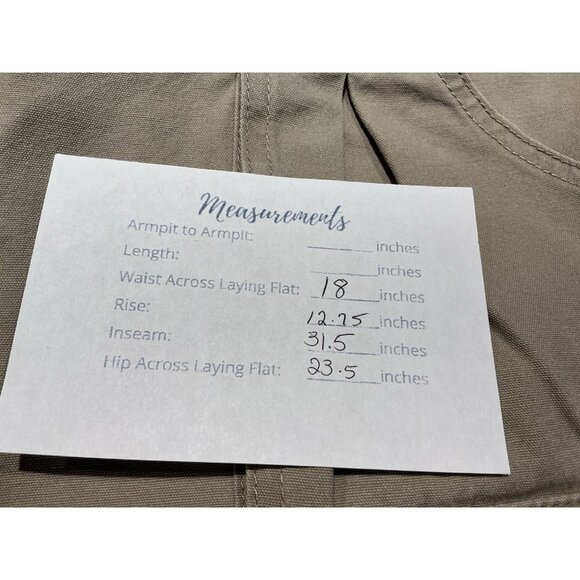 Measurements
Armpit to Armpit: ______ inches
Length: ______ inches
Waist Across Laying Flat: 18 inches
Rise: 12.75 inches
Inseam: 31.5 inches
Hip Across Laying Flat: 23.5 inches